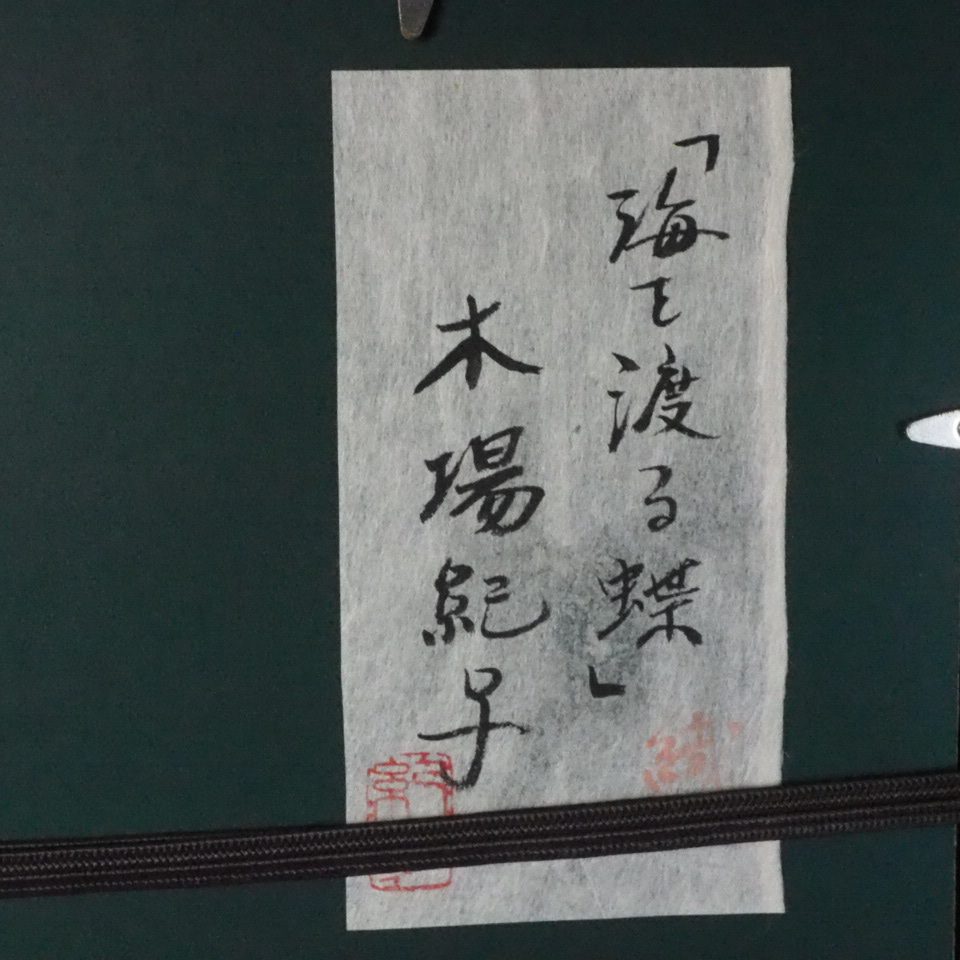 「海を渡る蝶」
木場紀子